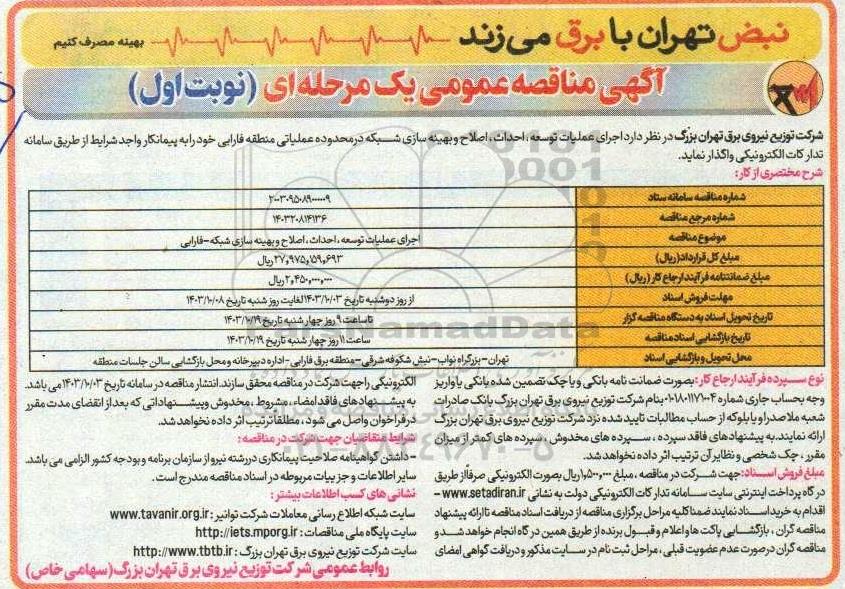 نبض تهران با برق می زند
بهینه مصرف کنیم
آگهی مناقصه عمومی یک مرحله ای (نوبت اول)
شرکت توزیع نیروی برق تهران بزرگ در نظر دارد اجرای عملیات توسعه، احداث، اصلاح و بهینه سازی شبکه درمحدوده عملیاتی منطقه فارابی خود را به پیمانکار واجد شرایط از طریق سامانه
تدارکات الکترونیکی واگذار نماید.
شرح مختصری از کار:
شماره مناقصه سامانه ستاد ۲۰۰۳۰۹۵۰۸۹۰۰۰۰۰۹
شماره مرجع مناقصه ۱۴۰۳۲۰۸۱۴۱۳۶
موضوع مناقصه اجرای عملیات توسعه، احداث، اصلاح و بهینه سازی شبکه-فارابی
مبلغ کل قرارداد(ریال) ۲۷,۹۷۵,۱۵۹,۶۹۳ریال
مبلغ ضمانتنامه فرآیند ارجاع کار (ریال) ۲,۴۵۰,۰۰۰,۰۰۰ریال
مهلت فروش اسناد از روز دوشنبه تاریخ ۱۴۰۳/۱۰/۰۳لغایت روز شنبه تاریخ ۱۴۰۳/۱۰/۰۸
تاریخ تحویل اسناد به دستگاه مناقصه گزار تاساعت ۹ روز چهار شنبه تاریخ ۱۴۰۳/۱۰/۱۹
تاریخ بازگشایی اسناد مناقصه ساعت ۱۱ روز چهار شنبه تاریخ ۱۴۰۳/۱۰/۱۹
محل تحویل و بازگشایی اسناد تهران-بزرگراه نواب-نبش شکوفه شرقی-منطقه برق فارابی-اداره دبیرخانه و محل بازگشایی سالن جلسات منطقه
نوع سپرده فرآیند ارجاع کار: بصورت ضمانت نامه بانکی و یا چک تضمین شده بانکی یا واریز
وجه بحساب جاری شماره ۰۱۰۸۰۱۱۷۱۰۰۴ بنام شرکت توزیع نیروی برق تهران بزرگ بانک صادرات
شعبه ملاصدرا و یا بلوکه از حساب مطالبات تایید شده نزد شرکت توزیع نیروی برق تهران بزرگ
ارائه نمایند. به پیشنهادهای فاقد سپرده، سپرده های مخدوش، سپرده های کمتر از میزان
مقرر، چک شخصی و نظایر آن ترتیب اثر داده نخواهد شد.
مبلغ فروش اسناد: جهت شرکت در مناقصه، مبلغ ۱,۵۰۰,۰۰۰ریال بصورت الکترونیکی صرفاً از طریق
درگاه پرداخت اینترنتی سایت سامانه تدارکات الکترونیکی دولت به نشانی www.setadiran.ir -
اقدام به خرید اسناد نمایند ضمنا کلیه مراحل برگزاری مناقصه از دریافت اسناد مناقصه تا ارائه پیشنهاد
مناقصه گران، بازگشایی پاکت ها و اعلام و قبول برنده از طریق همین درگاه انجام خواهد شد و
مناقصه گران درصورت عدم عضویت قبلی، مراحل ثبت نام در سایت مذکور و دریافت گواهی امضای
الکترونیکی را جهت شرکت در مناقصه محقق سازند. انتشار مناقصه در سامانه تاریخ ۱۴۰۳/۱۰/۰۳ می باشد.
به پیشنهادهای فاقد امضاء، مشروط، مخدوش و پیشنهاداتی که بعد از انقضای مدت مقرر
در فراخوان واصل می شود، مطلقا ترتیب اثر داده نخواهد شد.
شرایط متقاضیان جهت شرکت در مناقصه:
- داشتن گواهینامه صلاحیت پیمانکاری در رشته نیرو از سازمان برنامه و بودجه کشور الزامی می باشد.
سایر اطلاعات و جزییات مربوطه در اسناد مناقصه مندرج است.
نشانی های کسب اطلاعات بیشتر:
سایت شبکه اطلاع رسانی معاملات شرکت توانیر: www.tavanir.org.ir
سایت پایگاه ملی مناقصات: http://iets.mporg.ir
سایت شرکت توزیع نیروی برق تهران بزرگ: http://www.tbtb.ir
روابط عمومی شرکت توزیع نیروی برق تهران بزرگ(سهامی خاص)